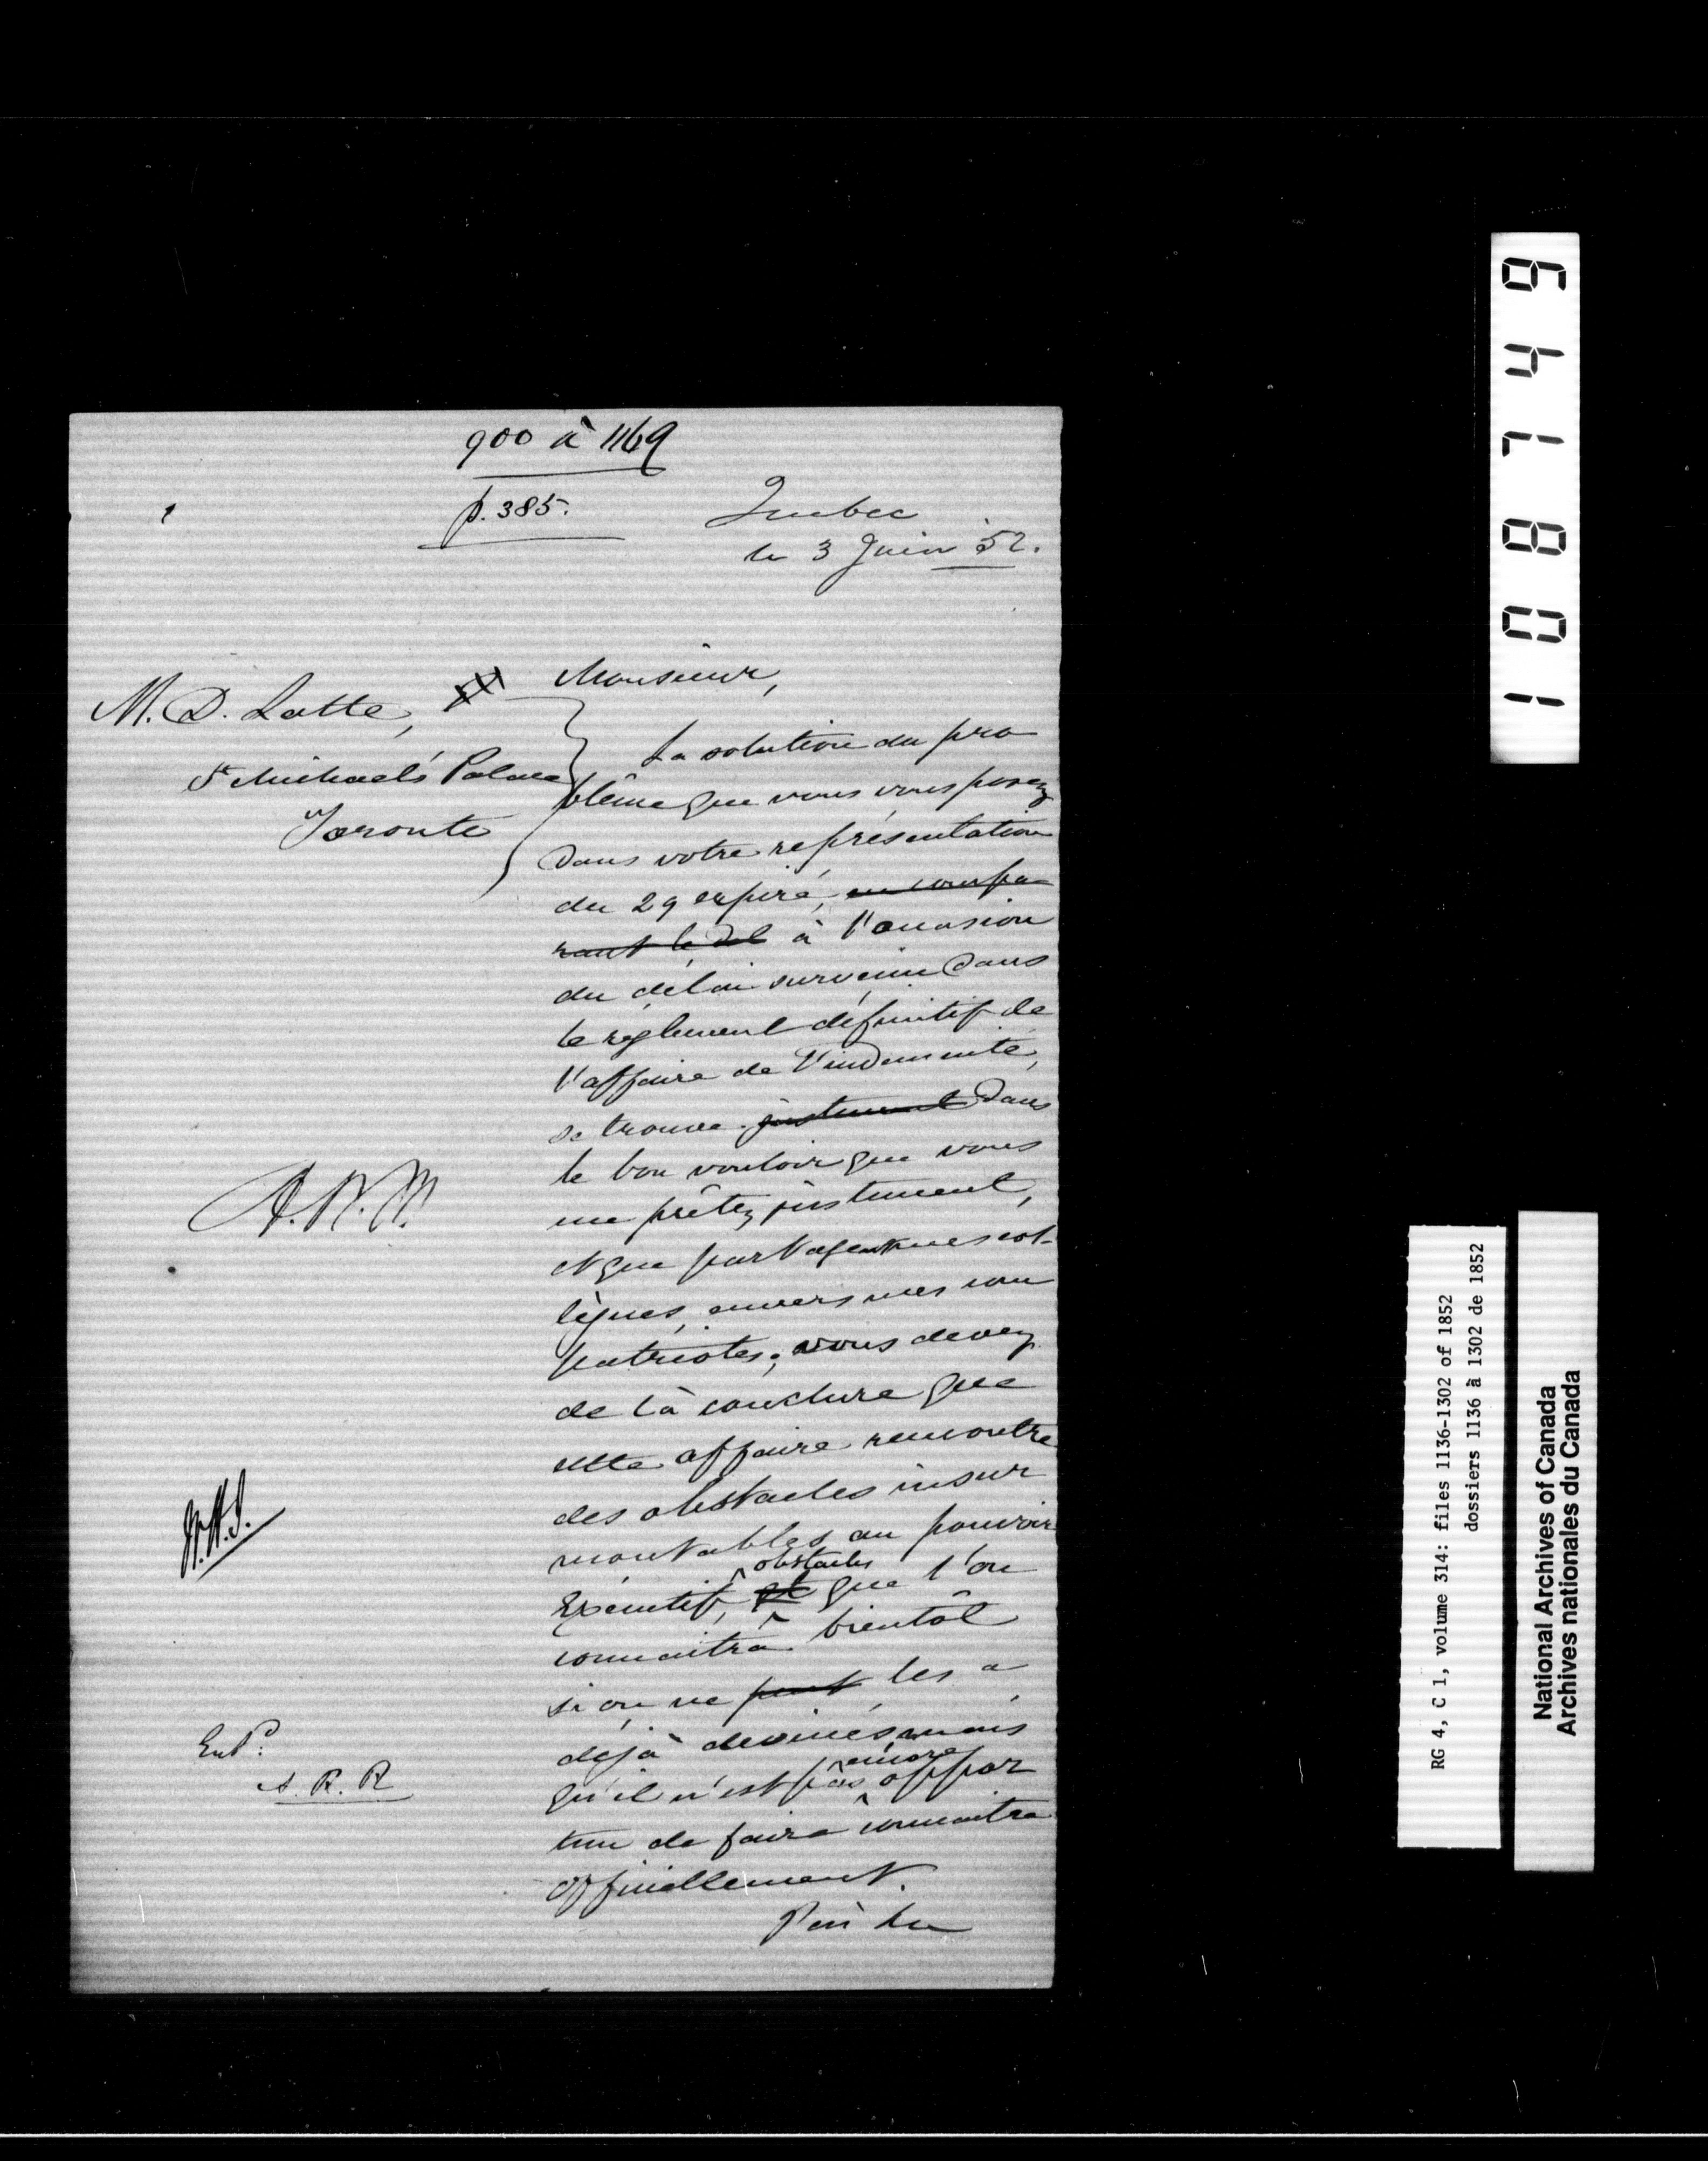 900 à 1169
p. 385.
Quebec
le 3 Juin 52.
Monsieur,
M. D. Latte,
St Michael's Palace
Toronto
La solution du pro
blême que vous vous posez
dans votre représentation
du 29 expiré, en compa
rant le del à l'occasion
du délai survenu dans
le règlement définitif de
l'affaire de l'indemnité,
se trouve justement dans
le bon vouloir que vous
me prêtez justement,
et que partagent mes col-
lègues, envers mes com
patriotes; vous devez
de là conclure que
cette affaire rencontre
des obstacles insur
montables au pouvoir
obstacles
Exécutif, et que l'on
connaitra bientôt
si on ne peut les a
déjà devinés mais
encore
qu'il n'est pas oppor
tun de faire connaitre
officiellement.
J'ai l'hr
A. N. M.
Entd.
A. R. R
108749
RG 4, C 1, volume 314: files 1136-1302 of 1852
dossiers 1136 à 1302 de 1852
National Archives of Canada
Archives nationales du Canada